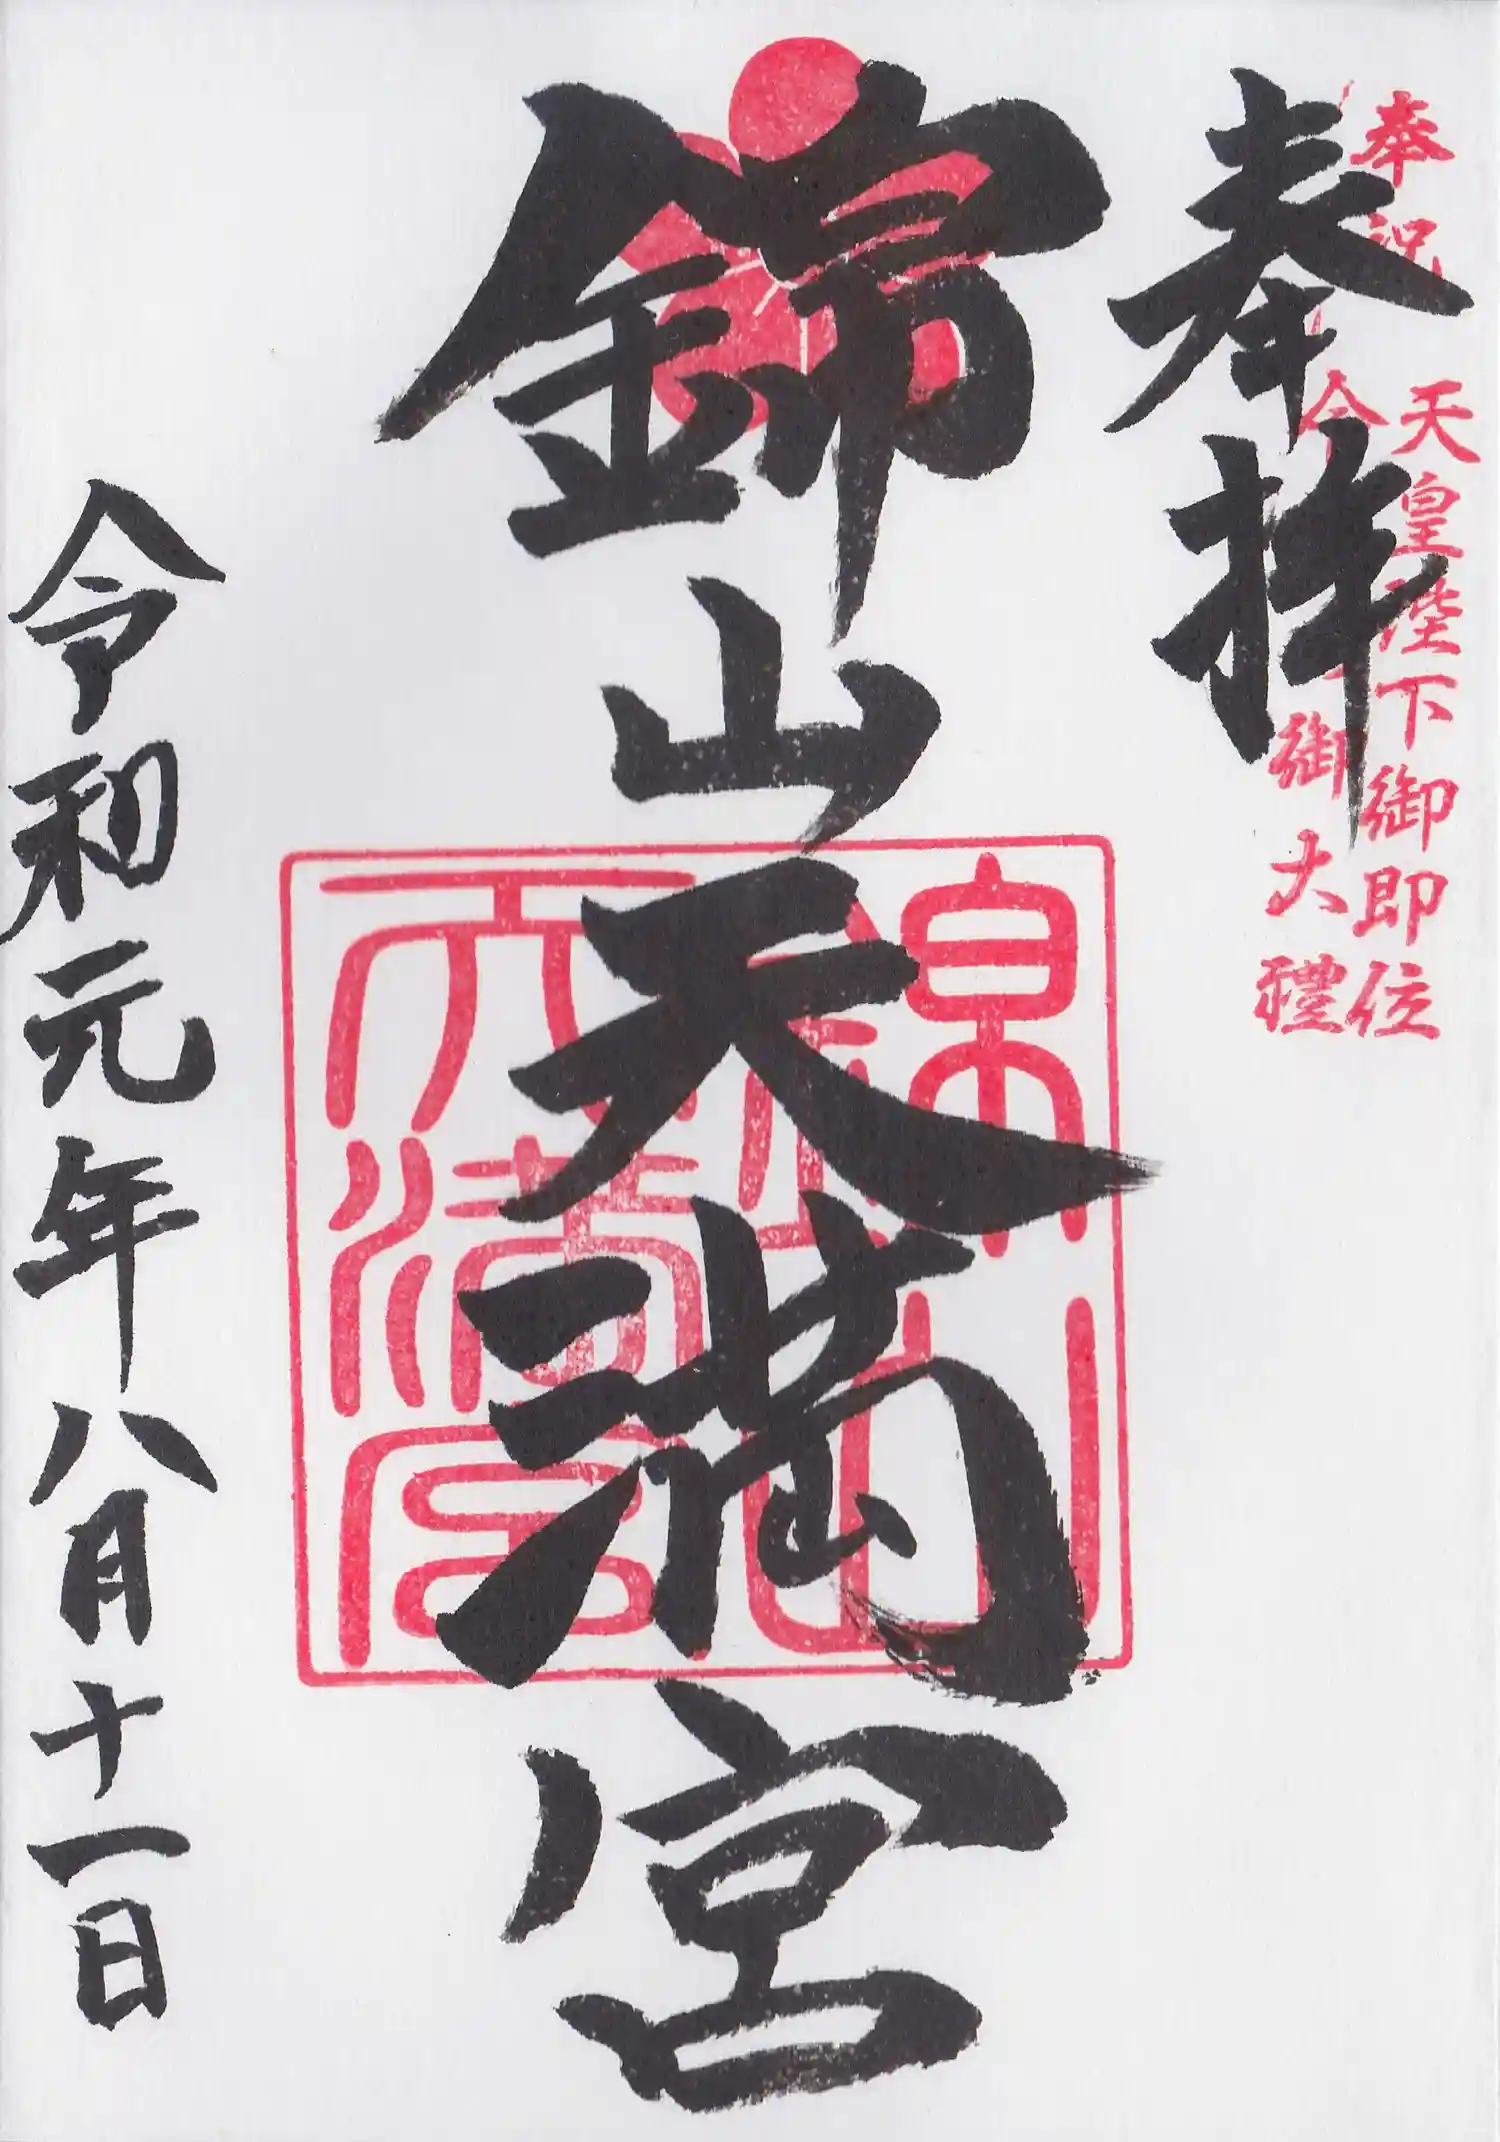 奉祝
天皇陛下御即位
御大禮
奉拝
錦山天満宮
錦山
天満宮
令和元年八月十一日